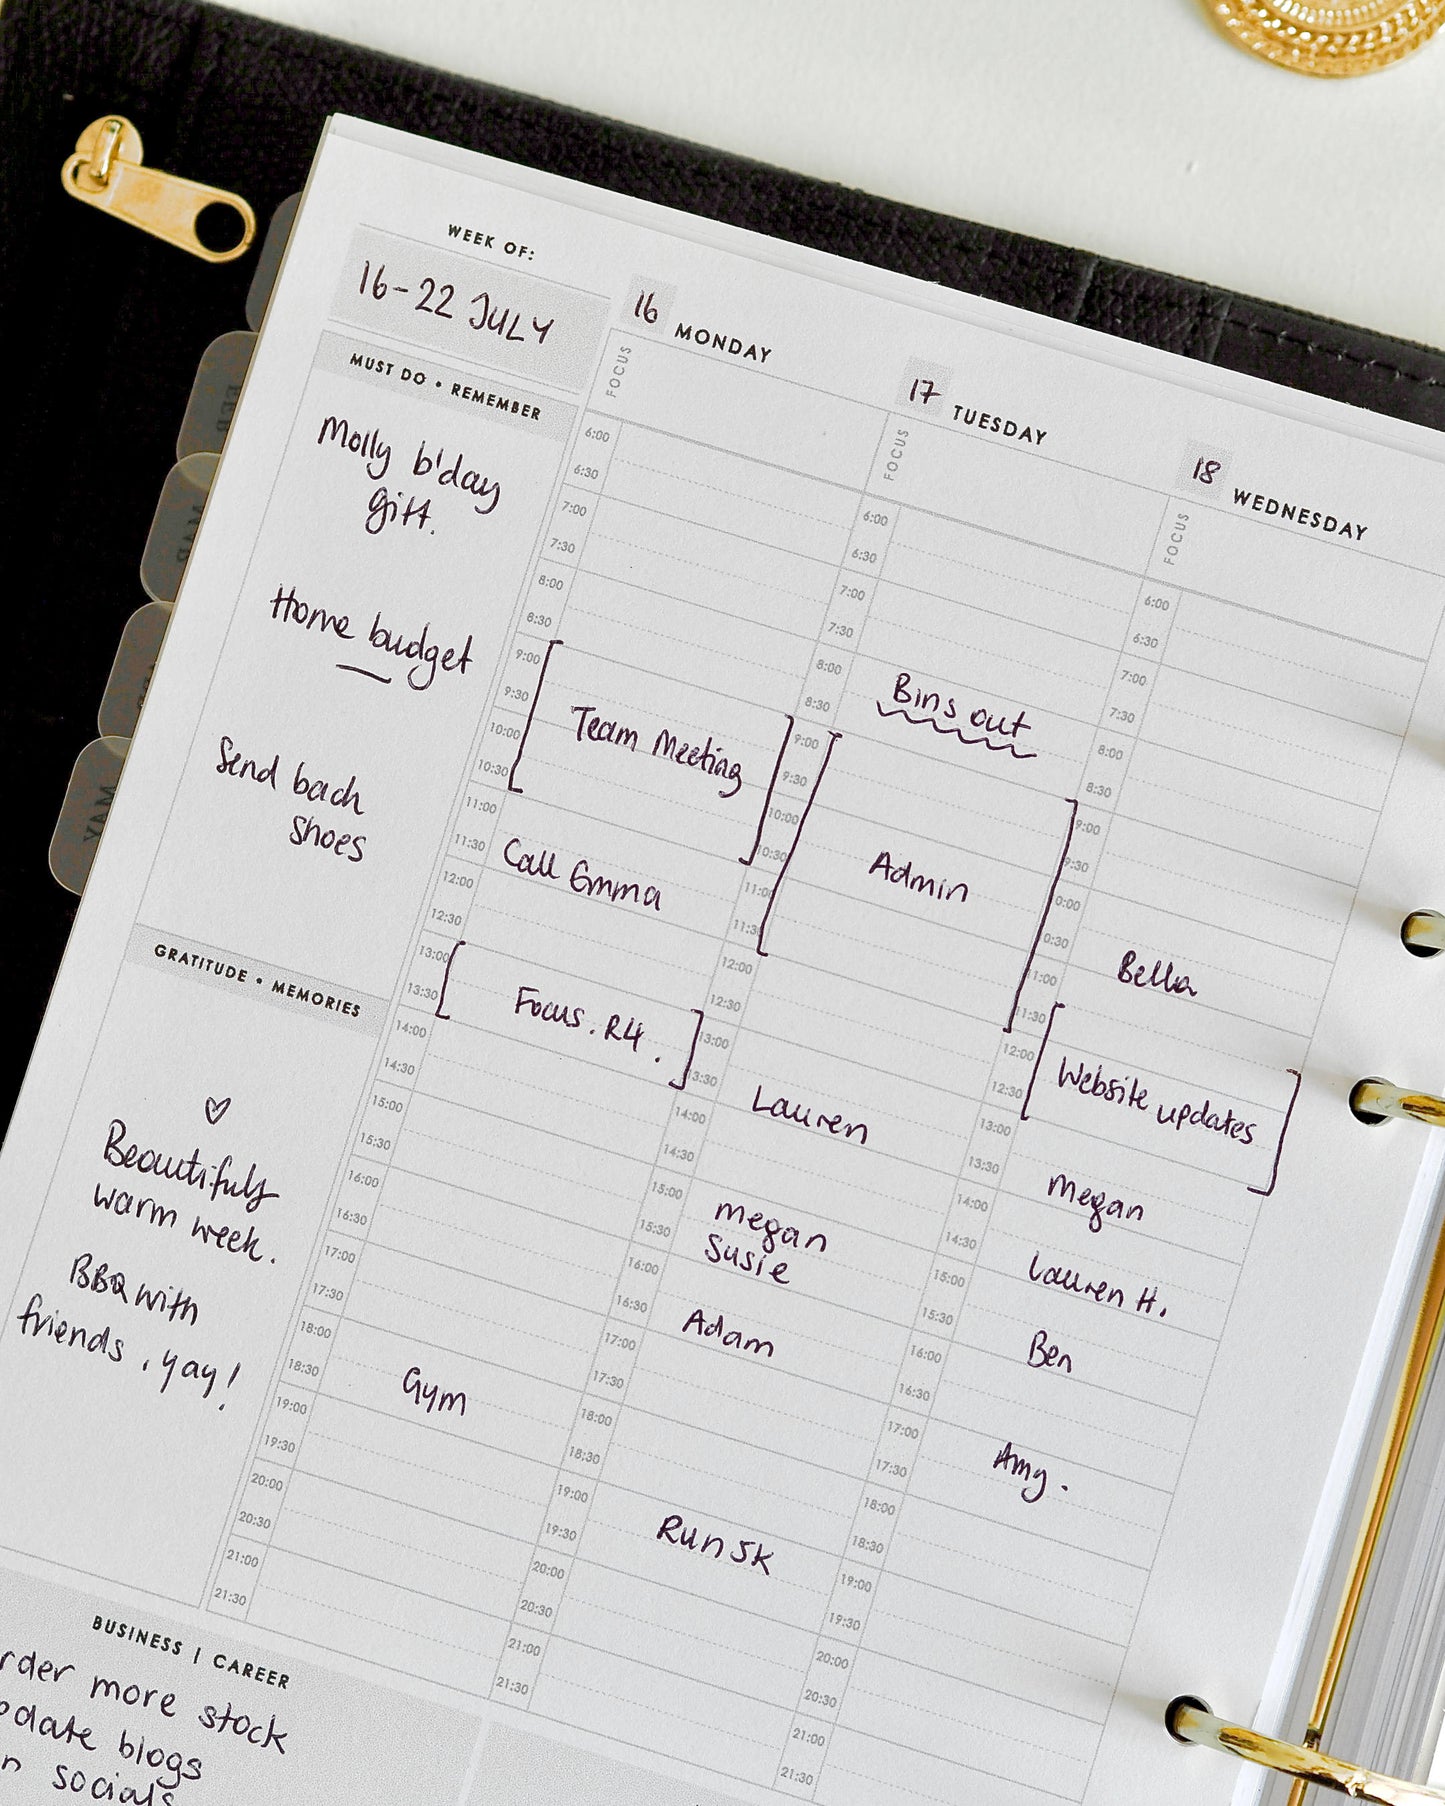 WEEK OF:
16-22 JULY
MUST DO • REMEMBER
Molly b'day
gift.
Home budget
Send back
shoes
GRATITUDE • MEMORIES
♡
Beautifully
warm week.
BBQ with
friends, yay!
BUSINESS | CAREER
more stock
blogs
socials
16 MONDAY
FOCUS
6:00
6:30
7:00
7:30
8:00
8:30
9:00
9:30
Team Meeting
10:00
10:30
11:00
11:30 Call Emma
12:00
12:30
13:00
13:30 Focus. R4.
14:00
14:30
15:00
15:30
16:00
16:30
17:00
17:30
18:00
18:30 Gym
19:00
19:30
20:00
20:30
21:00
21:30
17 TUESDAY
FOCUS
6:00
6:30
7:00
7:30
8:00
8:30 Bins out
9:00
9:30
10:00
10:30 Admin
11:00
11:30
12:00
12:30
13:00
13:30
Lauren
14:00
14:30
15:00
15:30 Megan
Susie
16:00
16:30
Adam
17:00
17:30
18:00
18:30
19:00
19:30 Run 5K
20:00
20:30
21:00
21:30
18 WEDNESDAY
FOCUS
6:00
6:30
7:00
7:30
8:00
8:30
9:00
9:30
0:00
0:30
Bella
11:00
11:30
12:00
Website updates
12:30
13:00
13:30
Megan
14:00
14:30
Lauren H.
15:00
15:30
Ben
16:00
16:30
17:00
17:30 Amy.
18:00
18:30
19:00
19:30
20:00
20:30
21:00
21:30
MAR
MAY